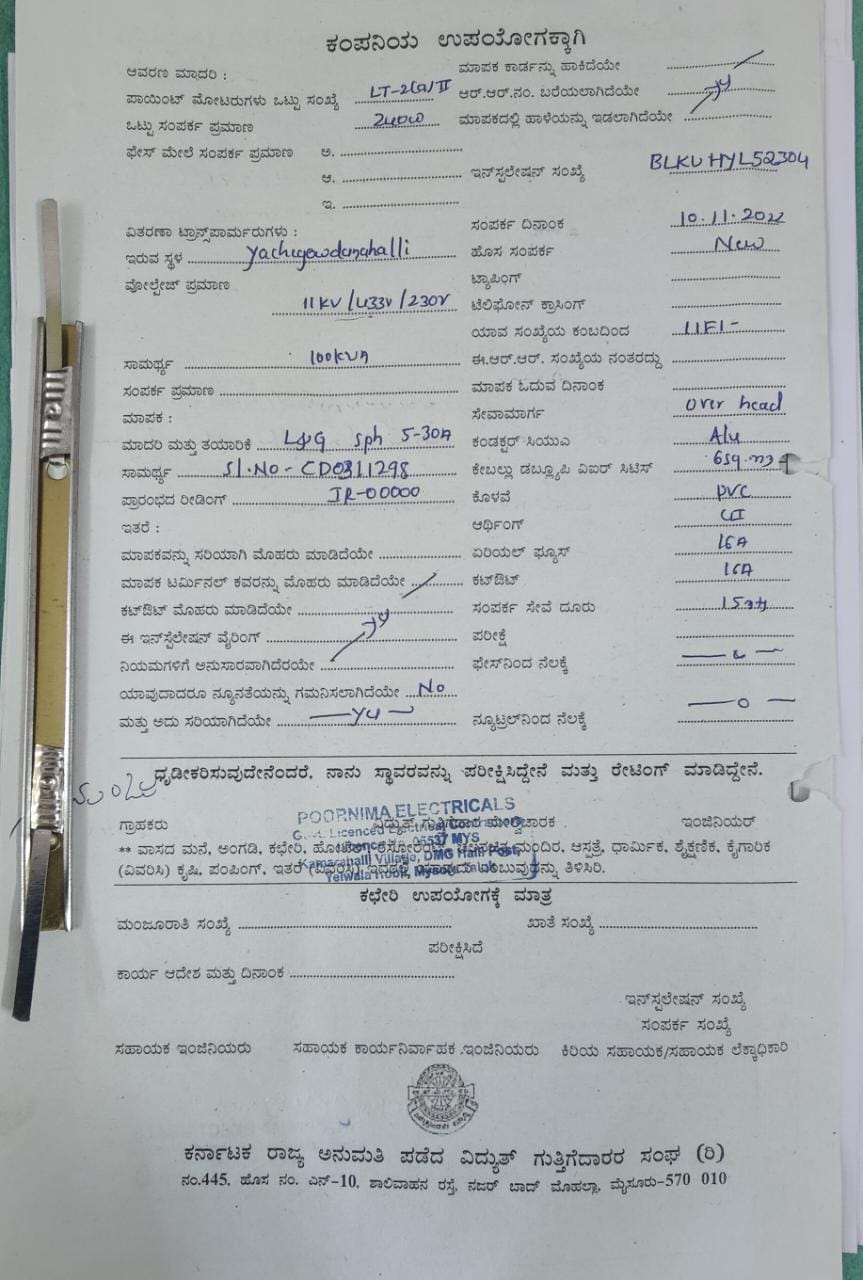 ಕಂಪನಿಯ ಉಪಯೋಗಕ್ಕಾಗಿ
ಆವರಣ ಮಾದರಿ :
ಮಾಪಕ ಕಾರ್ಡನ್ನು ಹಾಕಿದೆಯೇ
ಪಾಯಿಂಟ್ ಮೋಟರುಗಳು ಒಟ್ಟು ಸಂಖ್ಯೆ LT-2(a)II
ಆರ್.ಆರ್.ನಂ. ಬರೆಯಲಾಗಿದೆಯೇ
ಒಟ್ಟು ಸಂಪರ್ಕ ಪ್ರಮಾಣ 240W
ಮಾಪಕದಲ್ಲಿ ಹಾಳೆಯನ್ನು ಇಡಲಾಗಿದೆಯೇ
ಫೇಸ್ ಮೇಲೆ ಸಂಪರ್ಕ ಪ್ರಮಾಣ ಅ.
ಆ.
ಇ.
ಇನ್‌ಸ್ಟಲೇಷನ್ ಸಂಖ್ಯೆ BLKUHYL52304
ವಿತರಣಾ ಟ್ರಾನ್ಸ್‌ಪಾರ್ಮರುಗಳು :
ಸಂಪರ್ಕ ದಿನಾಂಕ 10.11.2022
ಇರುವ ಸ್ಥಳ Yachegowdanahalli
ಹೊಸ ಸಂಪರ್ಕ New
ವೋಲ್ಟೇಜ್ ಪ್ರಮಾಣ
ಟ್ಯಾಪಿಂಗ್
11KV/433V/230V
ಟೆಲಿಫೋನ್ ಕ್ರಾಸಿಂಗ್
ಯಾವ ಸಂಖ್ಯೆಯ ಕಂಬದಿಂದ
ಸಾಮರ್ಥ್ಯ 100KVA
ಈ.ಆರ್.ಆರ್. ಸಂಖ್ಯೆಯ ನಂತರದ್ದು
ಸಂಪರ್ಕ ಪ್ರಮಾಣ
ಮಾಪಕ ಓದುವ ದಿನಾಂಕ
ಮಾಪಕ :
ಸೇವಾಮಾರ್ಗ Over head
ಮಾದರಿ ಮತ್ತು ತಯಾರಿಕೆ L&G sph 5-30A
ಕಂಡಕ್ಟರ್ ಸಿಯುಎ Alu
ಸಾಮರ್ಥ್ಯ Sl.No-CD0311298
ಕೇಬಲ್ಲು ಡಬ್ಲ್ಯೂಪಿ ವಿಐರ್ ಸಿಟಿಸ್
ಪ್ರಾರಂಭದ ರೀಡಿಂಗ್ IR-00000
ಕೊಳವೆ PVC
ಇತರೆ :
ಆರ್ಥಿಂಗ್ GI
ಮಾಪಕವನ್ನು ಸರಿಯಾಗಿ ಮೊಹರು ಮಾಡಿದೆಯೇ
ಏರಿಯಲ್ ಫ್ಯೂಸ್ 16A
ಮಾಪಕ ಟರ್ಮಿನಲ್ ಕವರನ್ನು ಮೊಹರು ಮಾಡಿದೆಯೇ
ಕಟ್‌ಔಟ್ 16A
ಕಟ್‌ಔಟ್ ಮೊಹರು ಮಾಡಿದೆಯೇ
ಸಂಪರ್ಕ ಸೇವೆ ದೂರು
ಈ ಇನ್‌ಸ್ಟೆಲೇಷನ್ ವೈರಿಂಗ್
ಪರೀಕ್ಷೆ
ನಿಯಮಗಳಿಗೆ ಅನುಸಾರವಾಗಿದೆರಯೇ
ಫೇಸ್‌ನಿಂದ ನೆಲಕ್ಕೆ
ಯಾವುದಾದರೂ ನ್ಯೂನತೆಯನ್ನು ಗಮನಿಸಲಾಗಿದೆಯೇ No
ಮತ್ತು ಅದು ಸರಿಯಾಗಿದೆಯೇ
ನ್ಯೂಟ್ರಲ್‌ನಿಂದ ನೆಲಕ್ಕೆ
ಧೃಡೀಕರಿಸುವುದೇನೆಂದರೆ, ನಾನು ಸ್ಥಾವರವನ್ನು ಪರೀಕ್ಷಿಸಿದ್ದೇನೆ ಮತ್ತು ರೇಟಿಂಗ್ ಮಾಡಿದ್ದೇನೆ.
POORNIMA ELECTRICALS
ಗ್ರಾಹಕರು ವಿದ್ಯುತ್ ಗುತ್ತಿಗೆದಾರ ಇಂಜಿನಿಯರ್
Govt. Licenced Electrical
05537 MYS
** ವಾಸದ ಮನೆ, ಅಂಗಡಿ, ಕಛೇರಿ, ಮಂದಿರ, ಆಸ್ಪತ್ರೆ, ಧಾರ್ಮಿಕ, ಶೈಕ್ಷಣಿಕ, ಕೈಗಾರಿಕ
Village, DMG Halli Post,
(ವಿವರಿಸಿ) ಕೃಷಿ, ಪಂಪಿಂಗ್, ಇತರೆ (ವಿವರಿಸಿ) ಎಂಬುವುದನ್ನು ತಿಳಿಸಿರಿ.
Yelwala Hobli, Mysore
ಕಛೇರಿ ಉಪಯೋಗಕ್ಕೆ ಮಾತ್ರ
ಮಂಜೂರಾತಿ ಸಂಖ್ಯೆ ಖಾತೆ ಸಂಖ್ಯೆ
ಪರೀಕ್ಷಿಸಿದೆ
ಕಾರ್ಯ ಆದೇಶ ಮತ್ತು ದಿನಾಂಕ
ಇನ್‌ಸ್ಟಲೇಷನ್ ಸಂಖ್ಯೆ
ಸಂಪರ್ಕ ಸಂಖ್ಯೆ
ಸಹಾಯಕ ಇಂಜಿನಿಯರು ಸಹಾಯಕ ಕಾರ್ಯನಿರ್ವಾಹಕ ಇಂಜಿನಿಯರು ಕಿರಿಯ ಸಹಾಯಕ/ಸಹಾಯಕ ಲೆಕ್ಕಾಧಿಕಾರಿ
ಕರ್ನಾಟಕ ರಾಜ್ಯ ಅನುಮತಿ ಪಡೆದ ವಿದ್ಯುತ್ ಗುತ್ತಿಗೆದಾರರ ಸಂಘ (ರಿ)
ನಂ.445, ಹೊಸ ನಂ. ಎನ್-10, ಶಾಲಿವಾಹನ ರಸ್ತೆ, ನಜರ್ ಬಾದ್ ಮೊಹಲ್ಲಾ, ಮೈಸೂರು-570 010